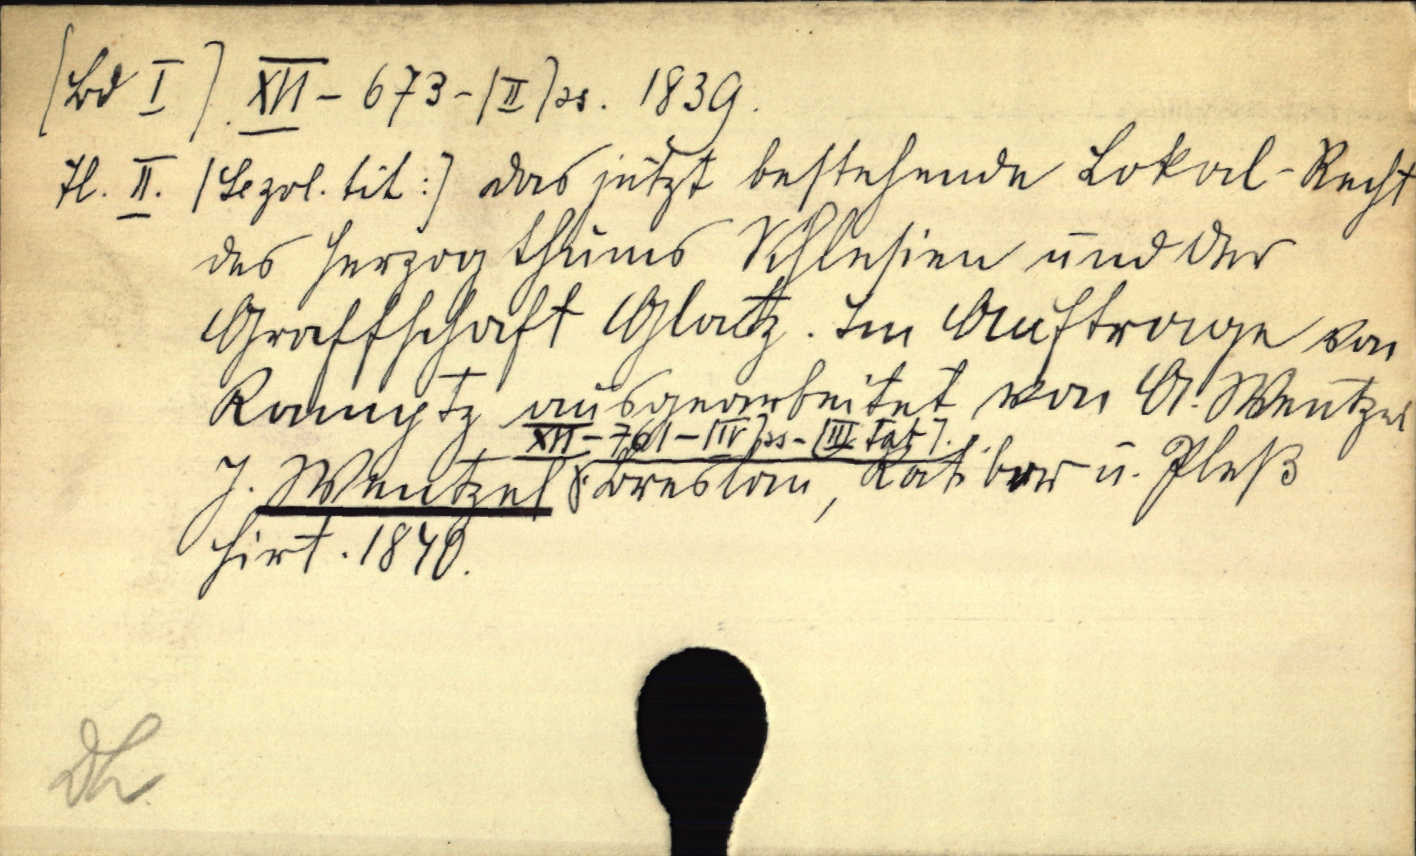 (Bd I). XVI - 673 - (II) ss. 1839.
Tl. II. (Sezol. tit:) das jetzt bestehende Lokal-Recht
des Herzogthums Schlesien und der
Graffschaft Glatz. Im Auftrage von
Kamptz ausgearbeitet von A. Wentzel
XII - 761 - (IV) ss - (III Tab).
J. Wentzel Breslau, Ratibor u. Pleß
Hirt. 1840.